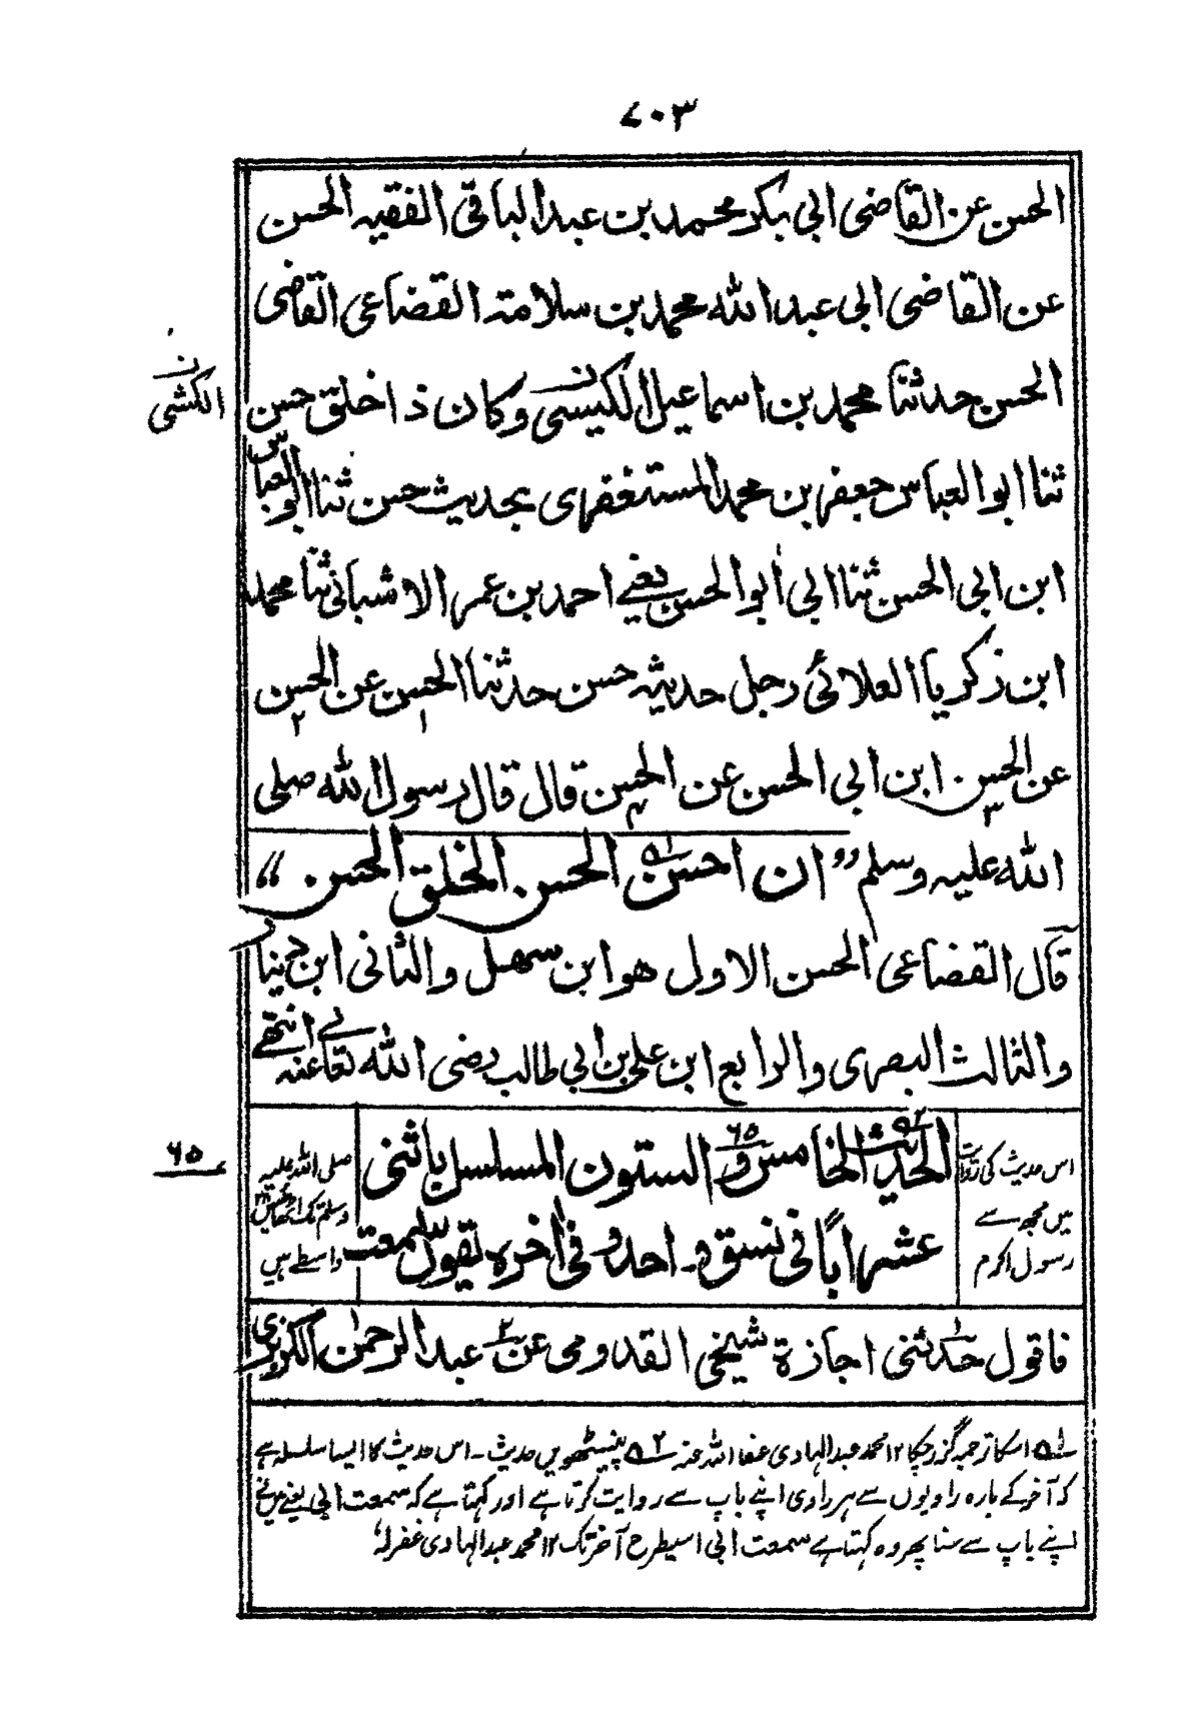 ۷۰۳
الحسن عن القاضی ابی بکر محمد بن عبد الباقی الفقیہ الحسن
عن القاضی ابی عبد اللہ محمد بن سلامتہ القضاعی القاضی
الحسن حدثنا محمد بن اسماعیل الکیسی ن وکان ذا خلق حسن
الکشی ن
ثنا ابو العباس جعفر بن محمد المستغفری بحدیث حسن ثنا ابو العباس
ابن ابی الحسن ثنا ابی ابو الحسن یعنے احمد بن عمر الاشبانی ثنا محمد
ابن زکریا العلائی رجل حدیثہ حسن حدثنا الحسن ۱ عن الحسن ۲
عن الحسن ۳ ابن ابی الحسن عن الحسن ۴ قال قال رسول اللہ صلی
اللہ علیہ وسلم ”ان احسن ۱ۃ الحسن الخلق الحسن“
قال القضاعی الحسن الاول ھو ابن سھل والثانی ابن دینار
والثالث البصری والرابع ابن علی بن ابی طالب رضی اللہ تعالے عنہ انتھے
الحدیث الخامس و الستون ۶۵ المسلسل باثنی
عشر ابًا فی نسق واحد و فی اٰخرہ یقول سمعت
اس حدیث کی روایت
میں مجھ سے
رسول اکرم
صلی اللہ علیہ
وسلم تک اٹھائیس
واسطے ہیں
۶۵
فاقول حدثنی ۱ اجازۃ شیخی القدومی عن ۲ عبد الرحمٰن الکزبری
۱ۃ اسکا ترجمہ گزر چکا ۱۲ محمد عبد الہادی عفا اللہ عنہ ۲ۃ پینسٹھویں حدیث ۔ اس حدیث کا ایسا سلسلہ ہے
کہ آخر کے بارہ راویوں سے ہر راوی اپنے باپ سے روایت کرتا ہے اور کہتا ہے کہ سمعت ابی یعنے میں نے
اپنے باپ سے سنا پھر وہ کہتا ہے سمعت ابی اسیطرح آخر تک ۱۲ محمد عبد الہادی غفر لہٗ